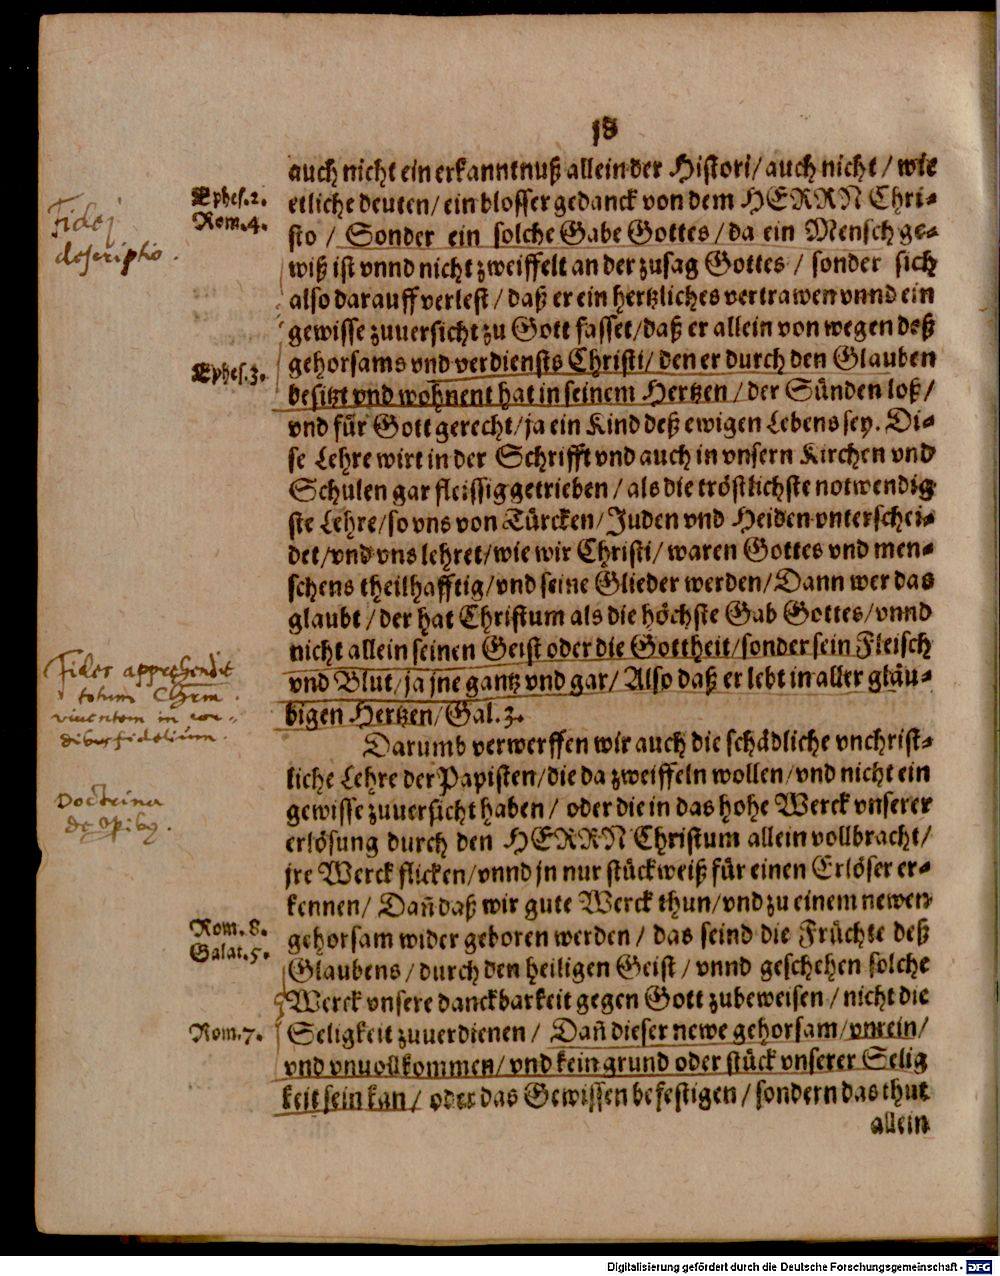 18
auch nicht ein erkanntnuß allein der Histori / auch nicht / wie
Ephes.2.
etliche deuten / ein blosser gedanck von dem HERRN Chri-
Rom.4.
Fidej
descriptio.
sto / Sonder ein solche Gabe Gottes / da ein Mensch ge-
wiß ist vnnd nicht zweiffelt an der zusag Gottes / sonder sich
also darauff verlest / daß er ein hertzliches vertrawen vnnd ein
gewisse zuuersicht zu Gott fasset / daß er allein von wegen deß
gehorsams vnd verdiensts Christi / den er durch den Glauben
Ephes.3.
besitzt vnd wohnent hat in seinem Hertzen / der Sünden loß /
vnd für Gott gerecht / ja ein Kind deß ewigen Lebens sey. Di-
se Lehre wirt in der Schrifft vnd auch in vnsern Kirchen vnd
Schulen gar fleissig getrieben / als die tröstlichste notwendig
ste Lehre / so vns von Türcken / Juden vnd Heiden vnterschei-
det / vnd vns lehret / wie wir Christi / waren Gottes vnd men-
schens theilhafftig / vnd seine Glieder werden / Dann wer das
glaubt / der hat Christum als die höchste Gab Gottes / vnnd
nicht allein seinen Geist oder die Gottheit / sonder sein Fleisch
Fides apprehendit
totum Chrm
viventem in cor-
dibus fidelium.
vnd Blut / ja jne gantz vnd gar / Also daß er lebt in aller gläu-
bigen Hertzen / Gal.3.
Darumb verwerffen wir auch die schädliche vnchrist-
liche Lehre der Papisten / die da zweiffeln wollen / vnd nicht ein
Doctrina
de opibus.
gewisse zuuersicht haben / oder die in das hohe Werck vnserer
erlösung durch den HERRN Christum allein vollbracht /
jre Werck flicken / vnnd jn nur stückweiß für einen Erlöser er-
kennen / Dañ daß wir gute Werck thun / vnd zu einem newen
Rom.8.
gehorsam wider geboren werden / das seind die Früchte deß
Galat.5.
Glaubens / durch den heiligen Geist / vnnd geschehen solche
Werck vnsere danckbarkeit gegen Gott zubeweisen / nicht die
Rom.7.
Seligkeit zuuerdienen / Dañ dieser newe gehorsam / vnrein /
vnd vnuollkommen / vnd kein grund oder stück vnserer Selig
keit sein kan / oder das Gewissen befestigen / sondern das thut
allein
Digitalisierung gefördert durch die Deutsche Forschungsgemeinschaft - DFG